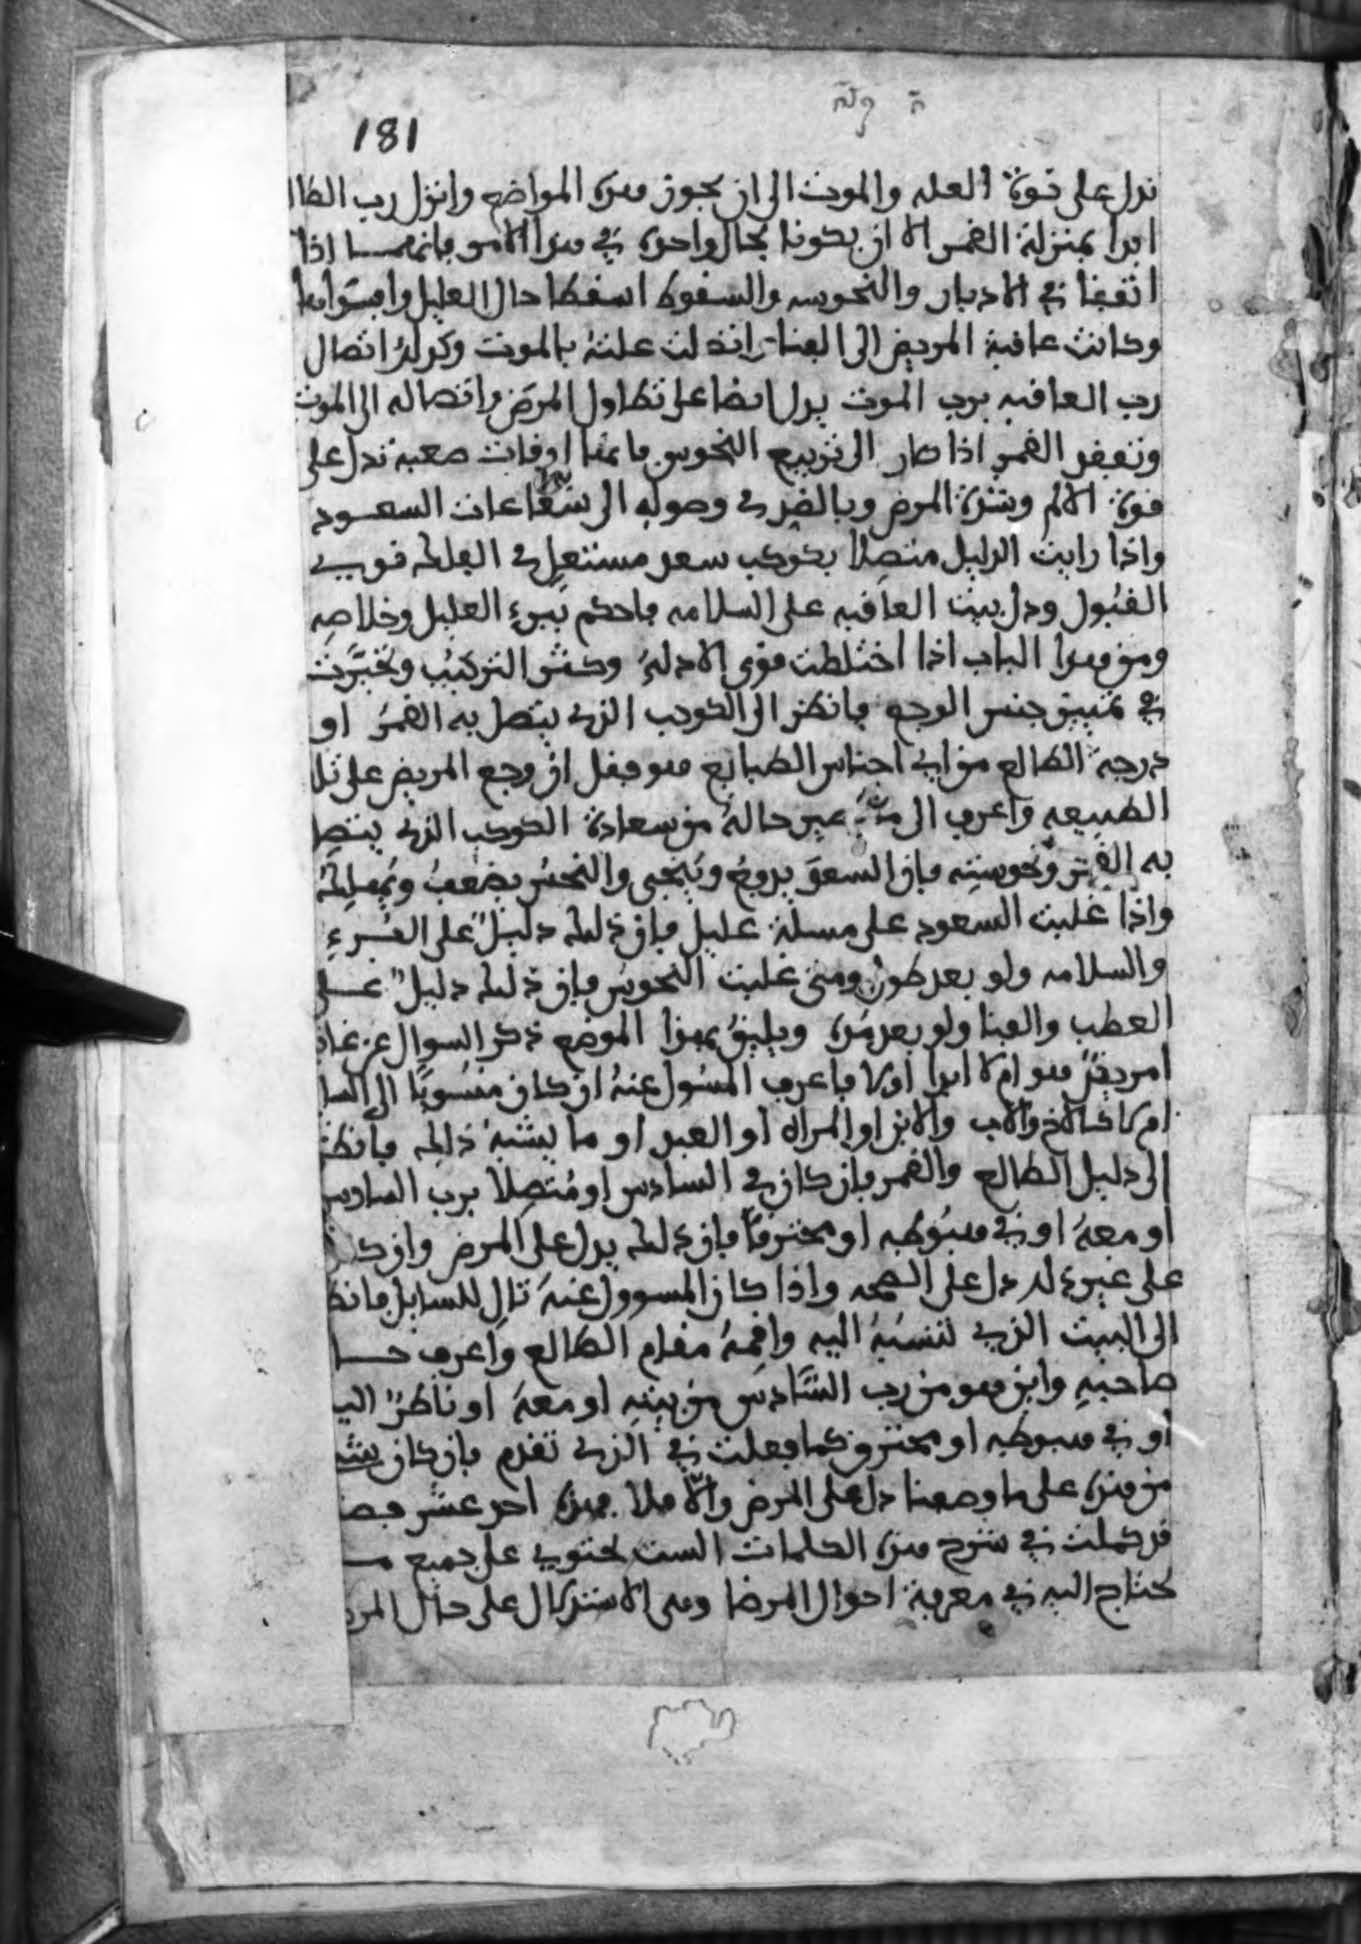 181
تدل على قوة العله والموت الى ان يجوز هذه المواضع وانزل رب الطا
ابدا بمنزلة القمر الا ان يكونا بحال واحده في هذا الامر فانهمـا اذا
اتفقا في الادبار والنحوسه والسقوط اسقطا حال العليل وافسداها
وكانت عاقبة المريض الى الفنا انتقلت علته بالموت وكذلك اتصال
رب العافيه برب الموت يدل ايضا على تطاول المرض واتصاله الى الموت
وتفقد القمر اذا صار الى تربيع النحوس فانها اوقات صعبه تدل على
قوة الالم وشدة المرض وبالضد في وصوله الى شعاعات السعود
واذا رايت الدليل متصلا بكوكب سعد مستعل في الفلك قوي
القبول ودل بيت العاقبه على السلامه فاحكم ببرء العليل وخلاصه
ومن هذا الباب اذا اختلطت قوى الادلة وكثر التركيب وتحيرت
في تمييز جنس الوجع فانظر الى الكوكب الذي يتصل به القمر او
درجة الطالع من اي اجناس الطبايع هو فقل ان وجع المريض على تلك
الطبيعه واعرف الى حاله من سعادة الكوكب الذي يتصل
به القمر ونحوسته فان السعد يروح وينجي والنحس يضعف ويهلك
واذا غلبت السعود على مسلة عليل فان ذلك دليل على البرء
والسلامه ولو بعد طول ومتى غلبت النحوس فان ذلك دليل على
العطب والفنا ولو بعد مده ويليق بهذا الموضع ذكر السوال عن غايب
امريض هو ام لا ابدا اولا فاعرف المسول عنه ان كان منسوبا الى السا
ام لا كالاخ والاب والابن او المراه او العبد او ما يشبه ذلك فانظر
الى دليل الطالع والقمر فان كان في السادس او متصلا برب السادس
او معه او في هبوطه او محترقا فان ذلك يدل على المرض وان كان
على غير ذلك دل على الصحه واذا كان المسوول عنه تال للسايل فانظ
الى البيت الذي تنسبه اليه واقمه مقام الطالع واعرف حـــا
صاحبه واين هو من رب السادس من بيته او معه او ناظر اليه
او في هبوطه او محترق كما فعلت في الذي تقدم فان كان بيته
من هذه على ما وصفنا دل على المرض والا فلا فهذه احد عشر فصلا
قد كملت في شرح هذه الكلمات الست تحتوي على جميع مـــ
تحتاج اليه في معرفة احوال المرضا وهي الاستدلال على حال المرض